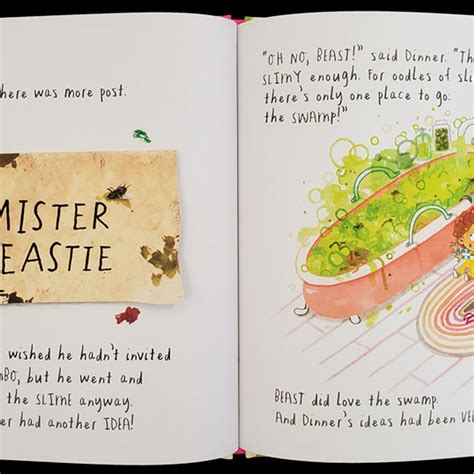 here was more post.
MISTER
EASTIE
wished he hadn't invited
MBO, but he went and
the SLIME anyway.
er had another IDEA!
"OH NO, BEAST!" said Dinner. "Th
SLIMY enough. For oodles of sli
there's only one place to go:
the SWAMP!"
BEAST did love the swamp.
And Dinner's ideas had been VE